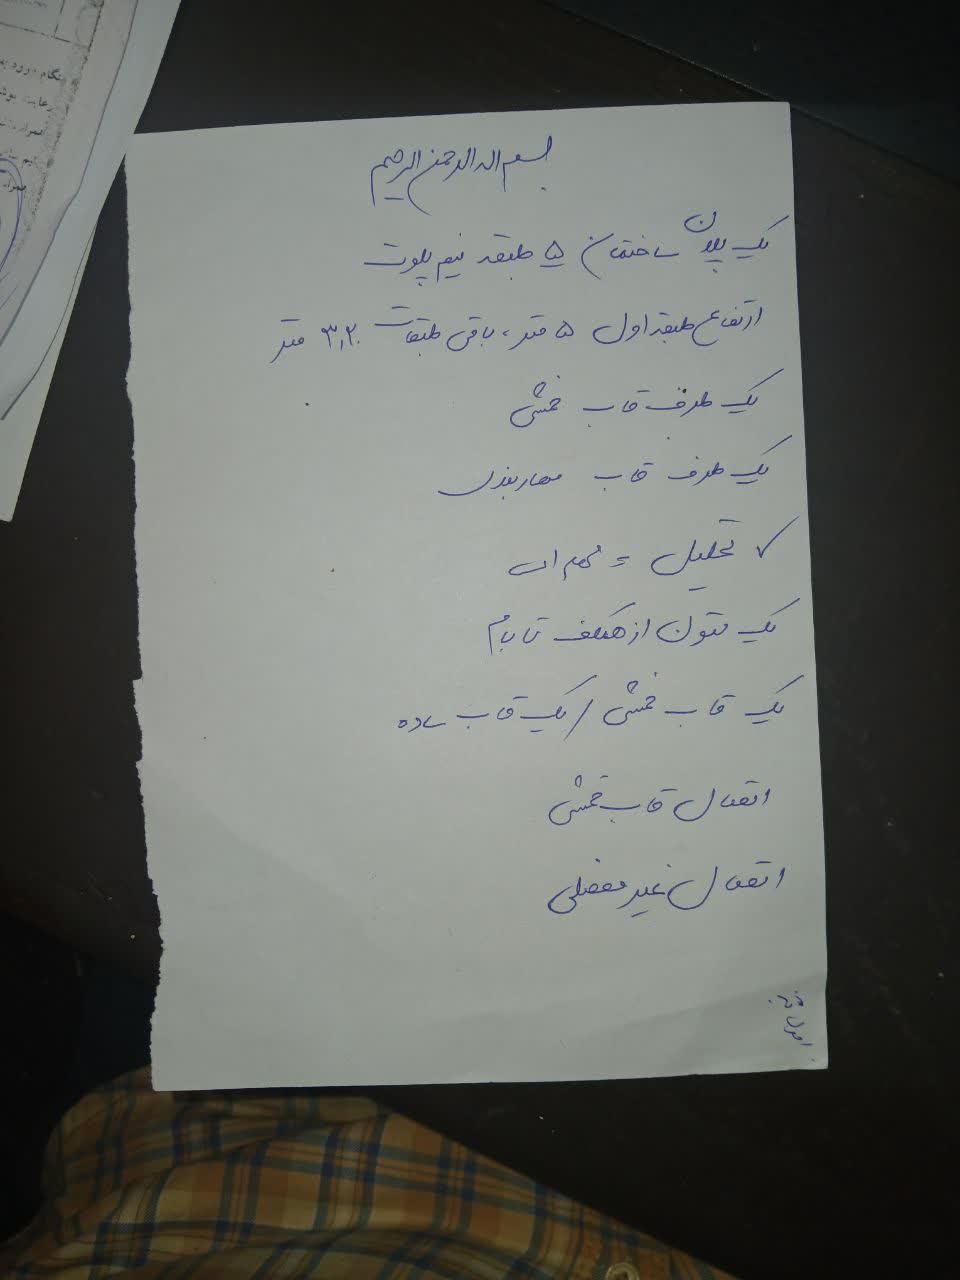 بسم الله الرحمن الرحیم
یک پلان ساختمان ۵ طبقه نیم پلوت
ارتفاع طبقه اول ۵ متر، باقی طبقات ۳٫۲۰ متر
یک طرف قاب خمشی
یک طرف قاب مهاربندی
✓ تحلیل = مهم است
یک ستون از همکف تا بام
یک قاب خمشی / یک قاب ساده
اتصال قاب خمشی
اتصال غیر مفصلی
نگام ورود به